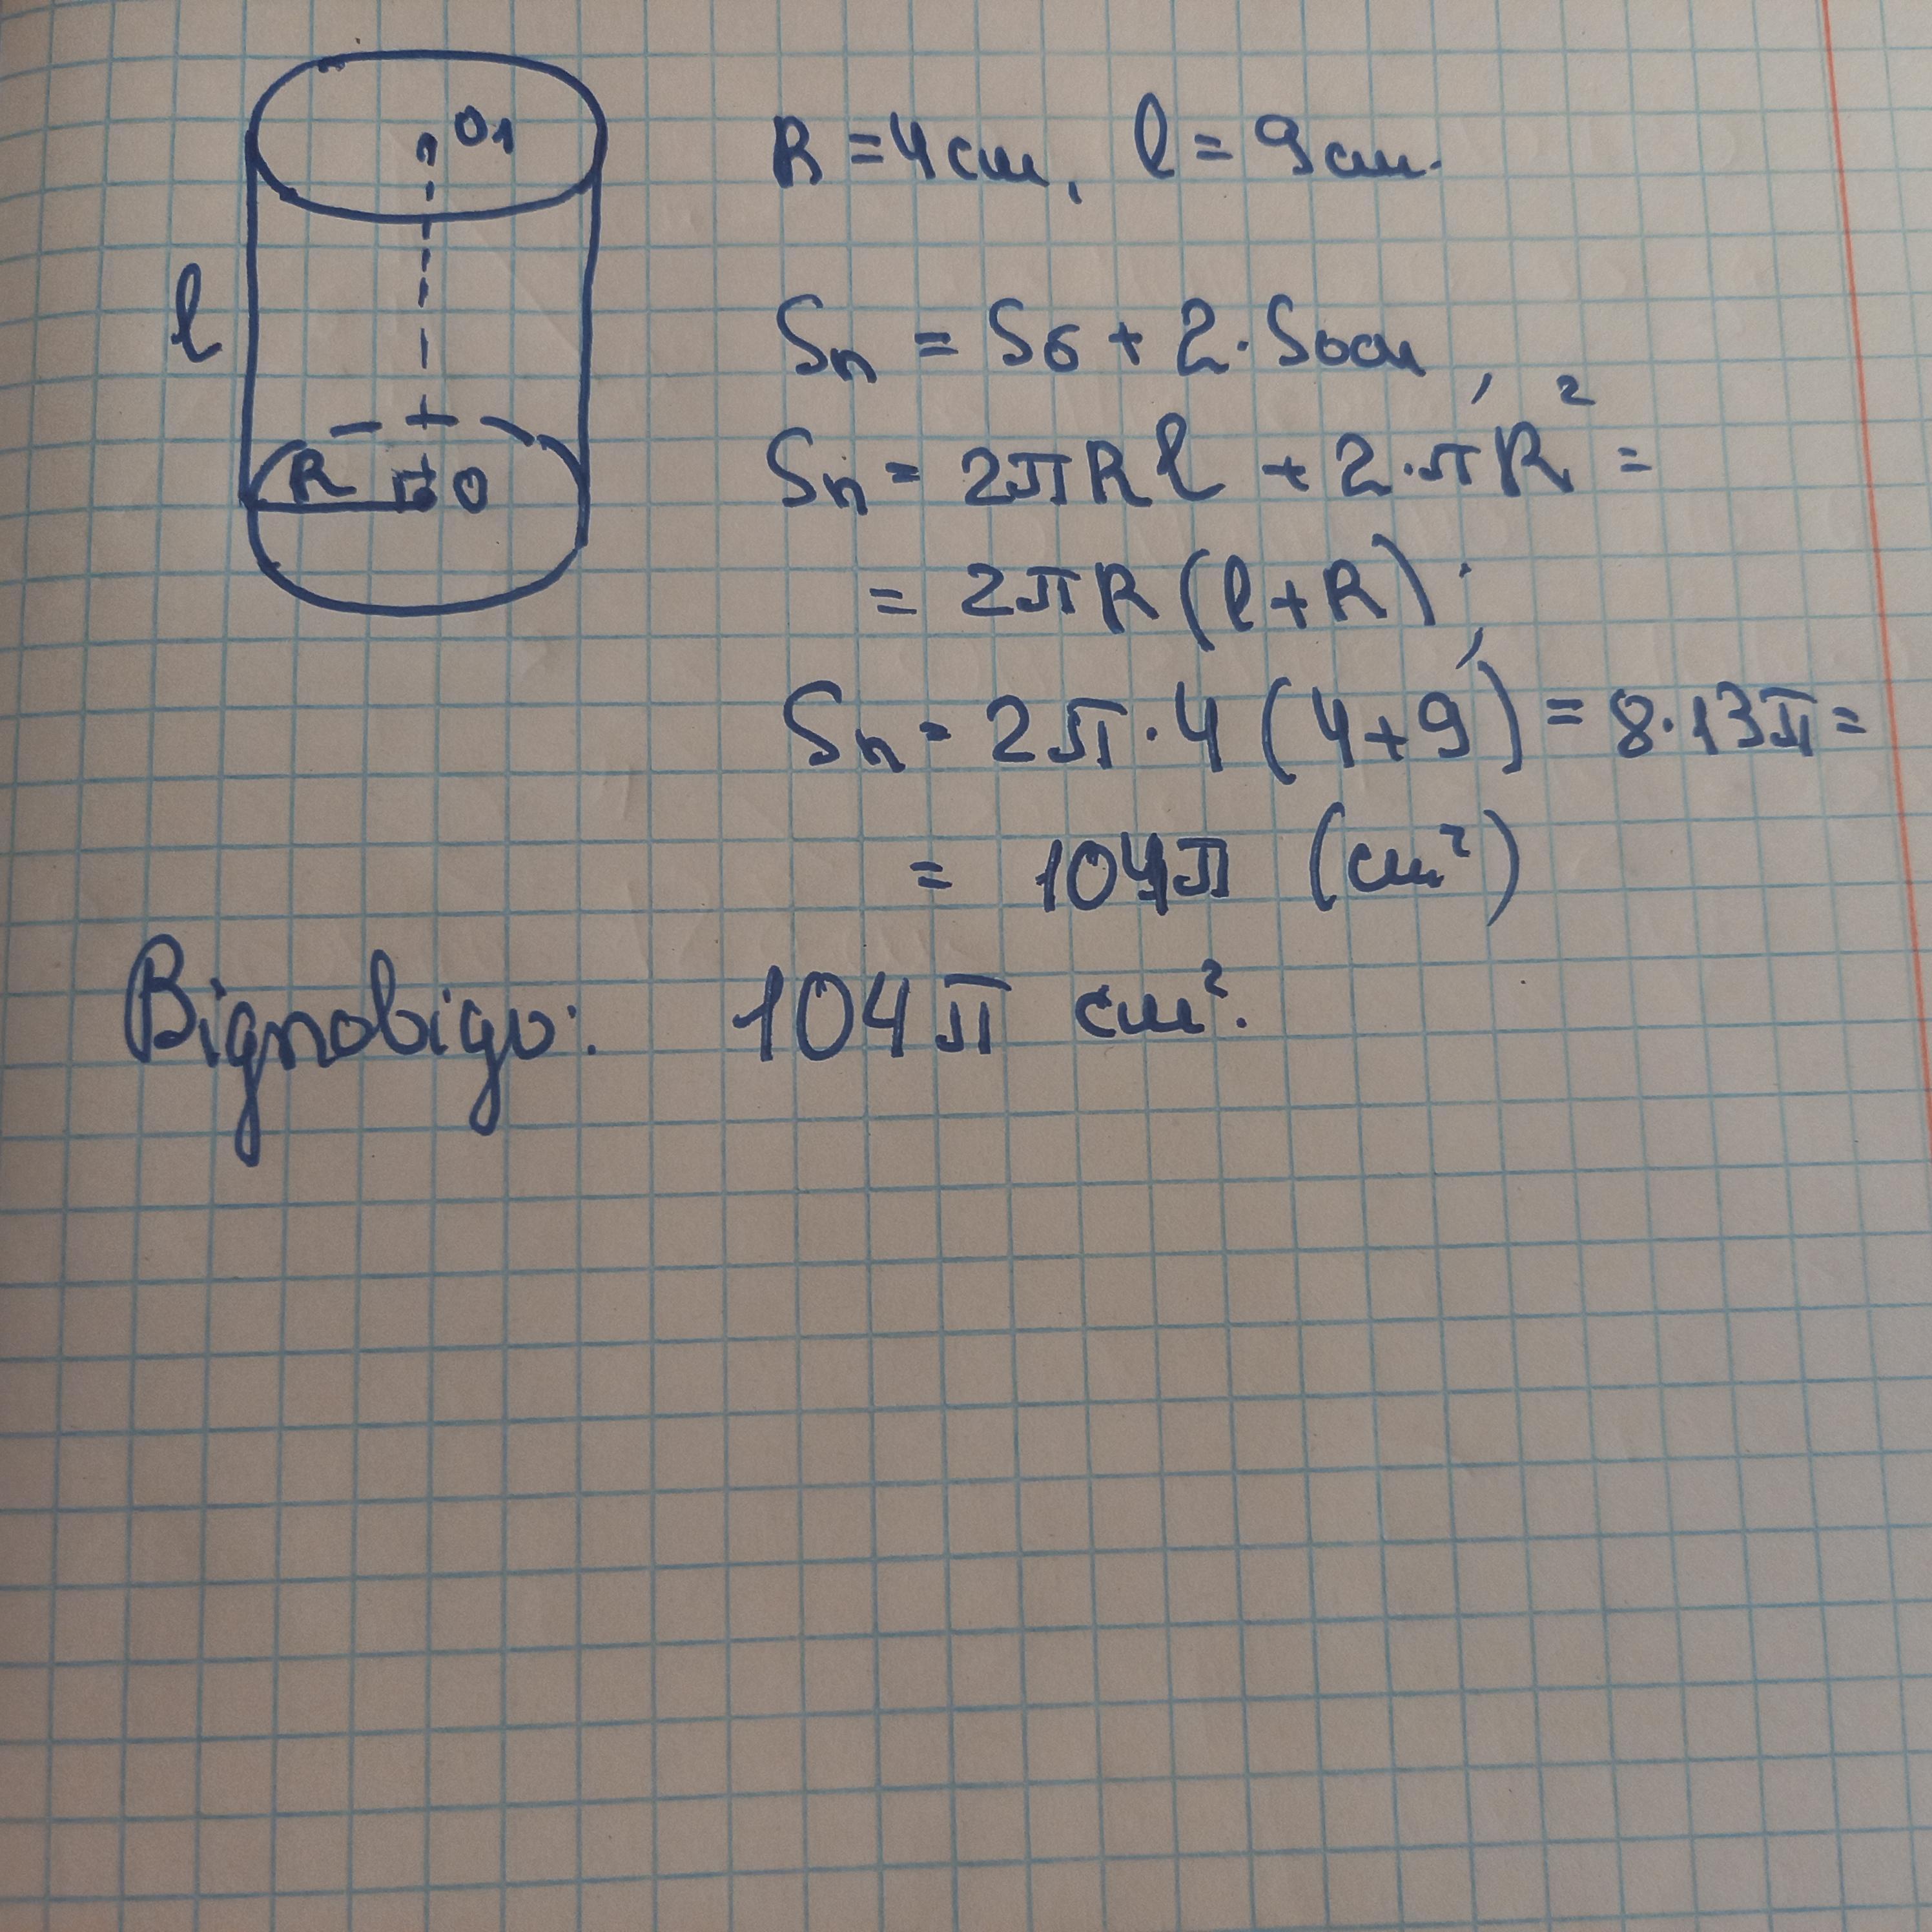 O₁
R = 4 см, l = 9 см.
l
Sп = Sб + 2·Sосн,
Sп = 2πRl + 2·πR² =
R O
= 2πR(l+R);
Sп = 2π·4(4+9) = 8·13π =
= 104π (см²)
Відповідь: 104π см².